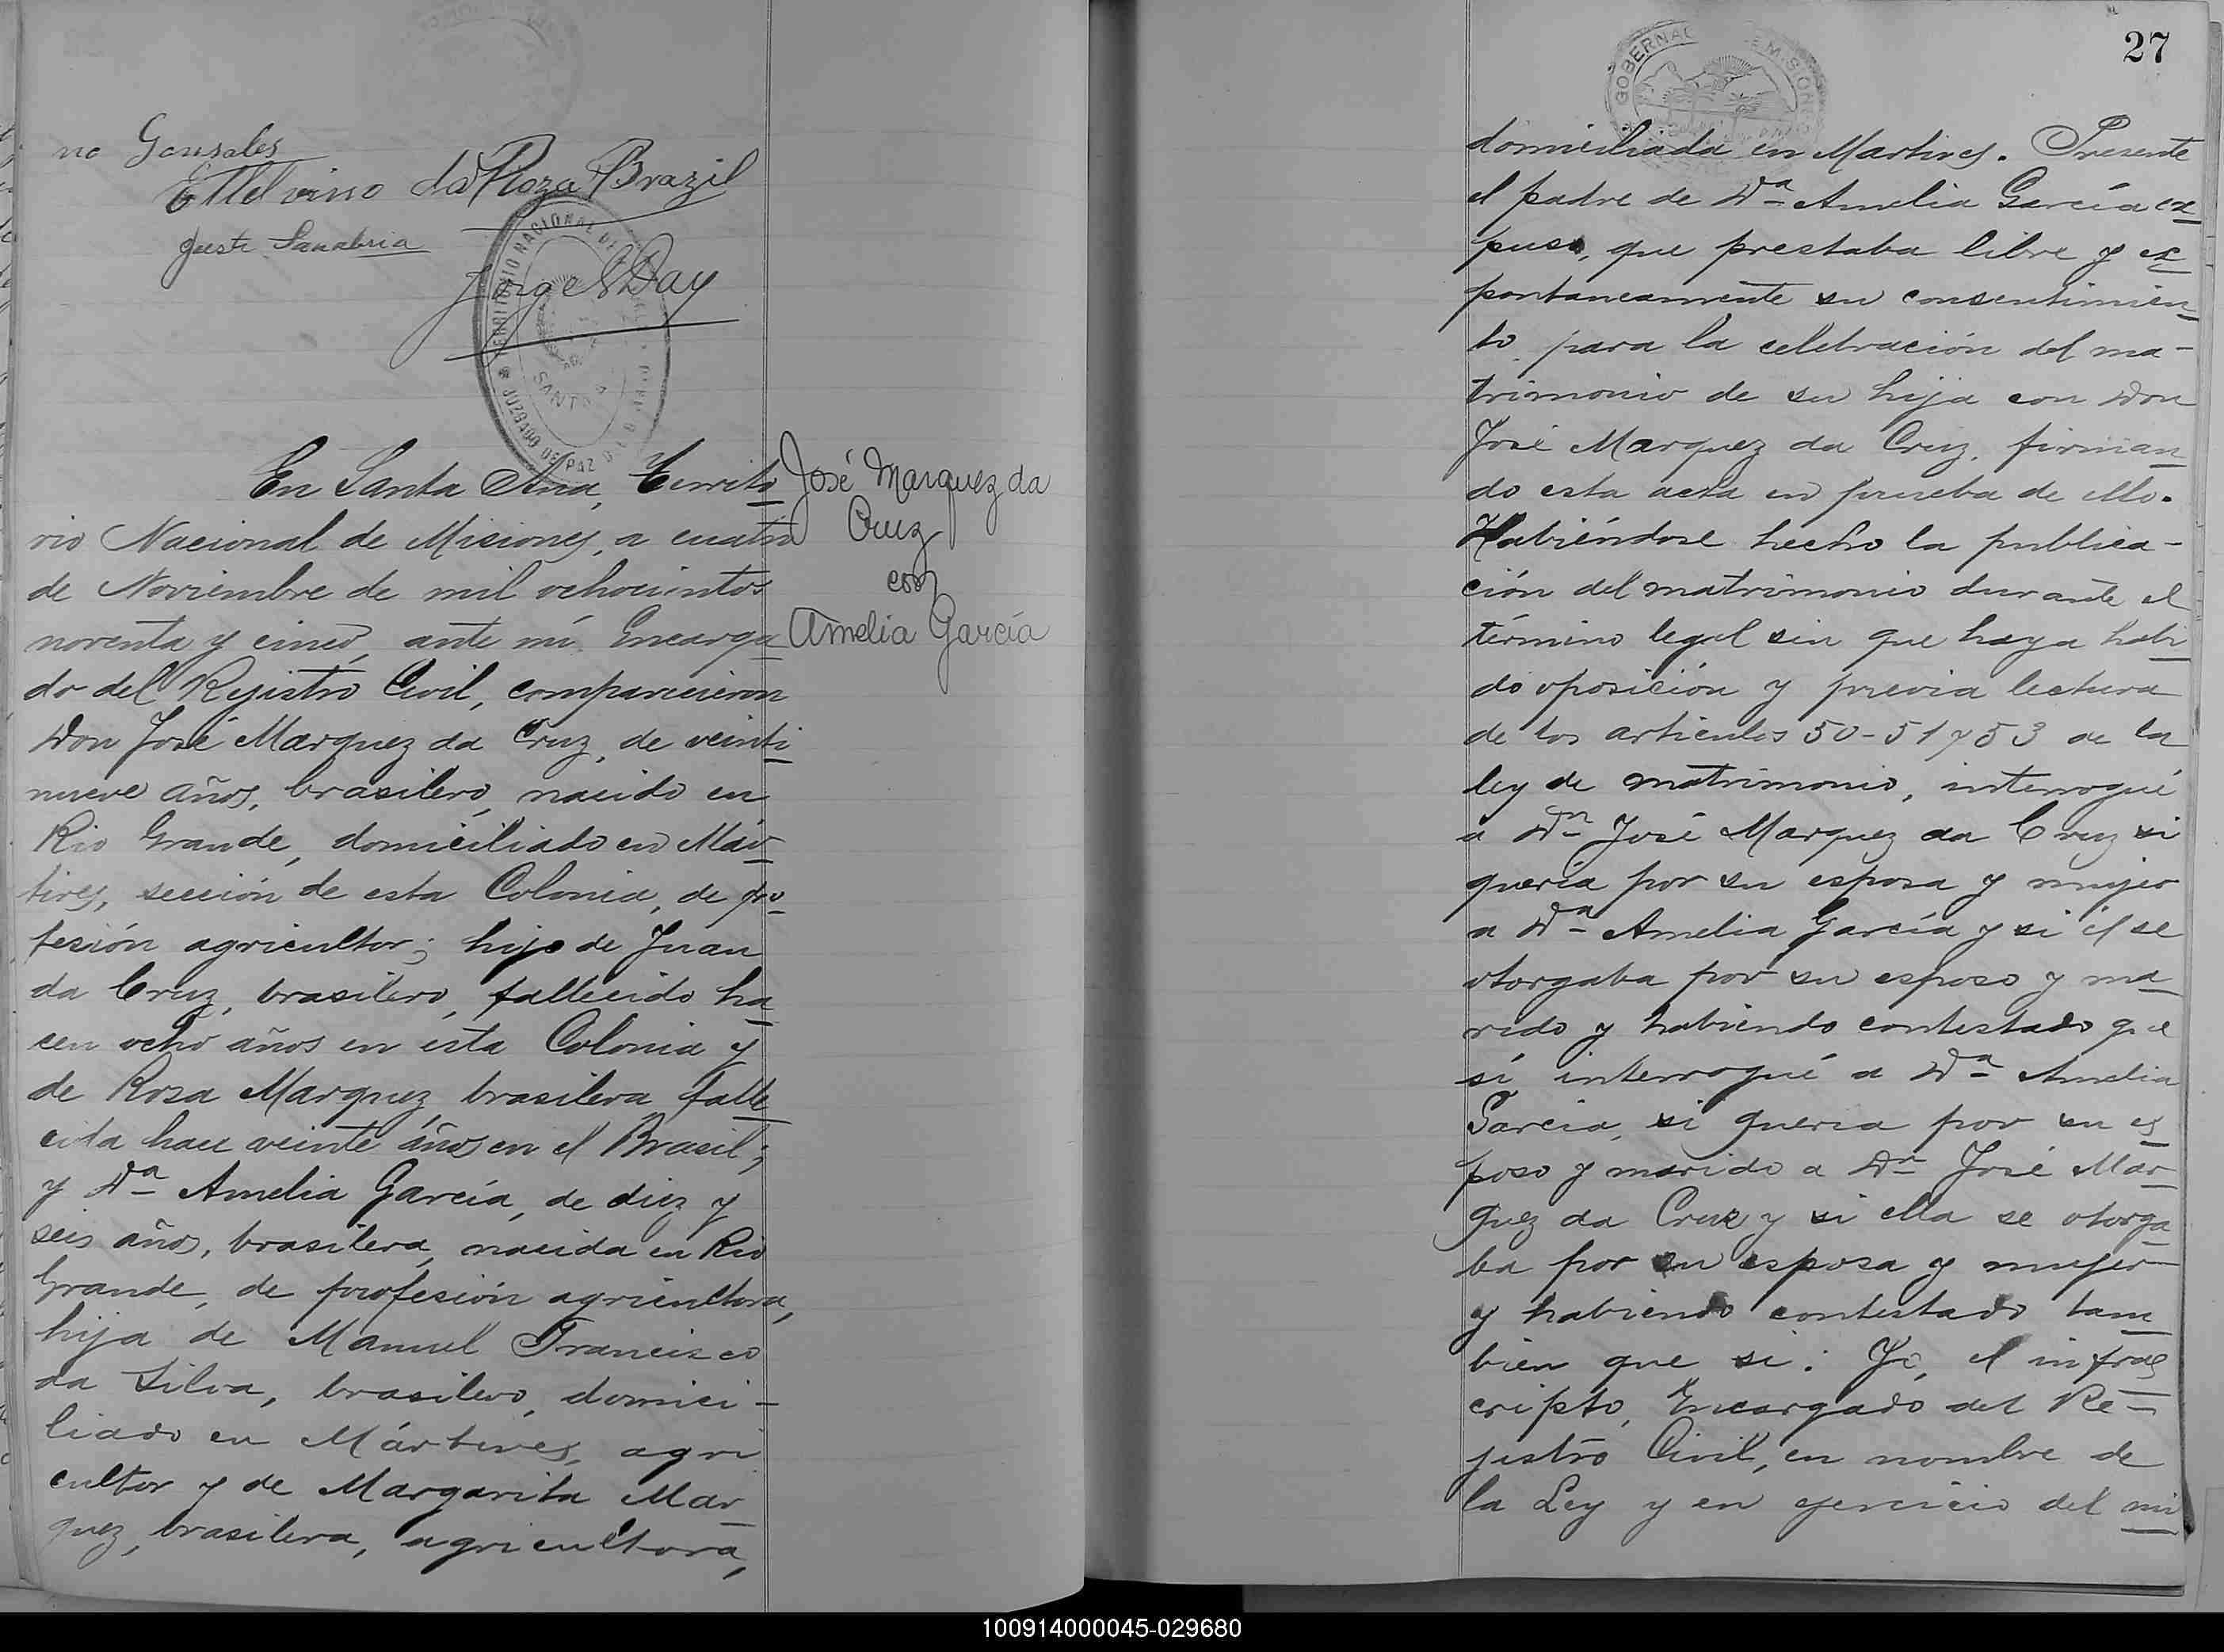 no Gonsales
Ettelvino da Roza Brazil
Juste Sanabria
Jorge Day
TERRITORIO NACIONAL DE
JUZGADO DE PAZ
SANTA
José Marquez da
Cruz
con
Amelia García
En Santa Ana, Territo
rio Nacional de Misiones, a cuatro
de Noviembre de mil ochocientos
noventa y cinco, ante mí Encarga
do del Rejistro Civil, comparecieron
Don José Marquez da Cruz, de veinti
nueve años, brasilero, nacido en
Rio Grande, domiciliado en Már
tires, sección de esta Colonia, de pro
fesión agricultor; hijo de Juan
da Cruz, brasilero, fallecido ha
cen ocho años en esta Colonia y
de Rosa Marquez, brasilera, falle
cida hace veinte años en el Brasil;
y Dª Amelia García, de diez y
seis años, brasilera, nacida en Rio
Grande, de profesión agricultora,
hija de Manuel Francisco
da Silva, brasilero, domici-
liado en Mártires, agri
cultor y de Margarita Mar
quez, brasilera, agricultora,
27
GOBERNAC
domiciliada en Martires. Presente
el padre de Dª Amelia García ex
puso, que prestaba libre y es
pontaneamente su consentimien
to para la celebración del ma-
trimonio de su hija con Don
José Marquez da Cruz, firman
do esta acta en prueba de ello.
Habiéndose hecho la publica-
ción del matrimonio durante el
término legal sin que haya habi
do oposición y previa lectura
de los artículos 50-51 y 53 de la
ley de matrimonio, interrogué
a Dn José Marquez da Cruz si
quería por su esposa y mujer
a Dª Amelia García y si él se
otorgaba por su esposo y ma
rido y habiendo contestado que
sí interrogué a Dª Amelia
García, si queria por su es
poso y marido a Dn José Mar
quez da Cruz y si ella se otorga
ba por su esposa y mujer
y habiendo contestado tam
bien que si: Yo, el infras
cripto, Encargado del Re-
jistro Civil, en nombre de
la Ley y en ejercicio del mi
100914000045-029680